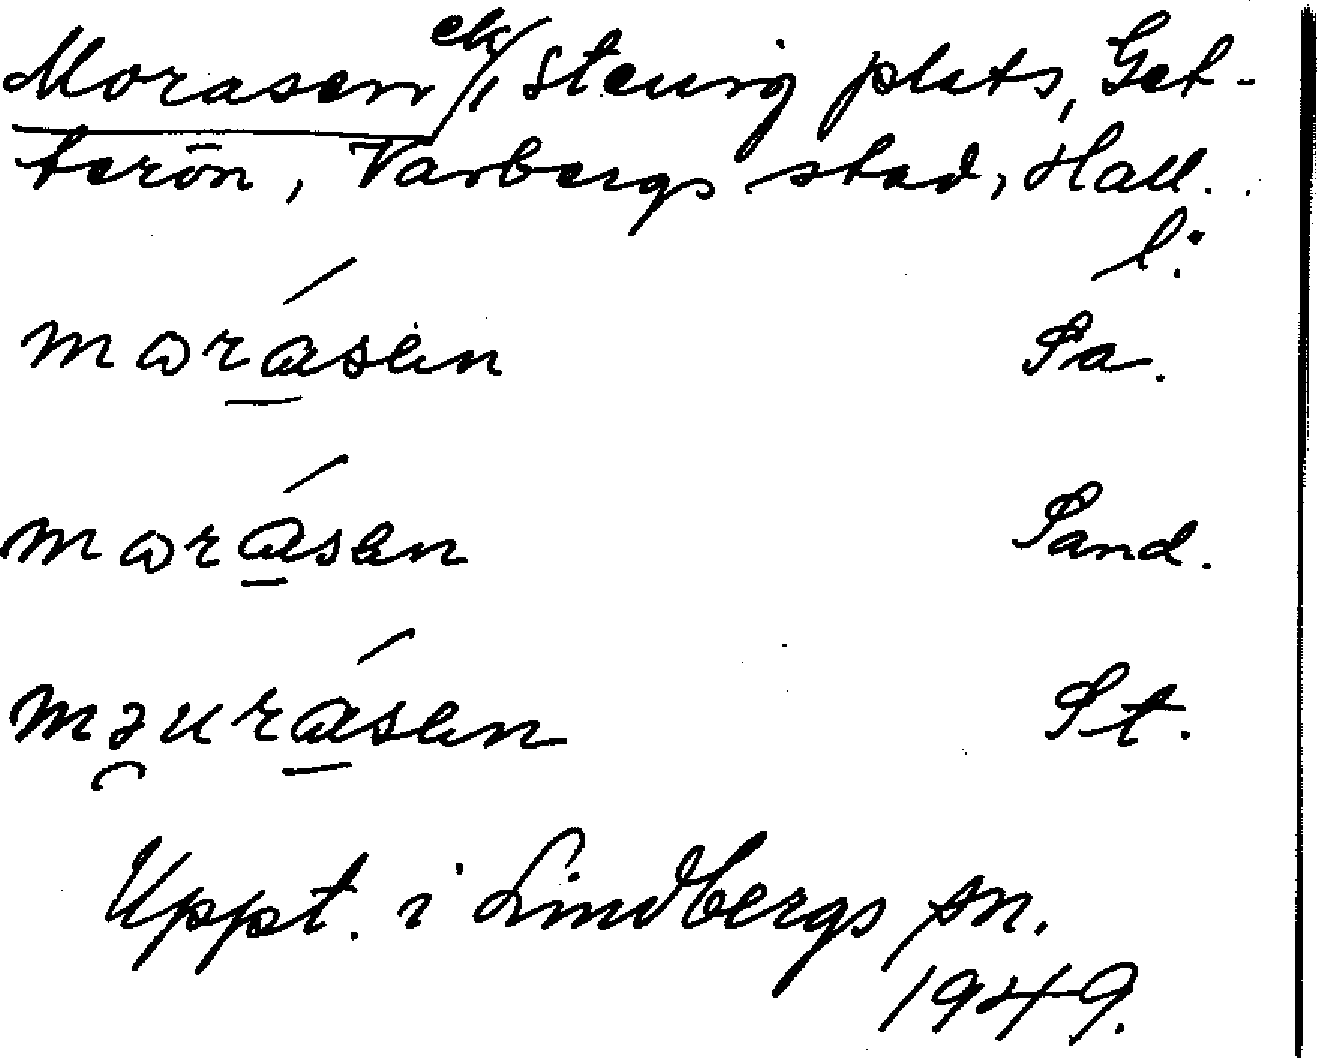 Morasen ek/, Stenig plats, Get-
terön, Varbergs stad, Hall.
l:
mɷrásen Pa.
mɷrásen Sand.
məurásen St.
Uppt. i Lindbergs sn.
1949.